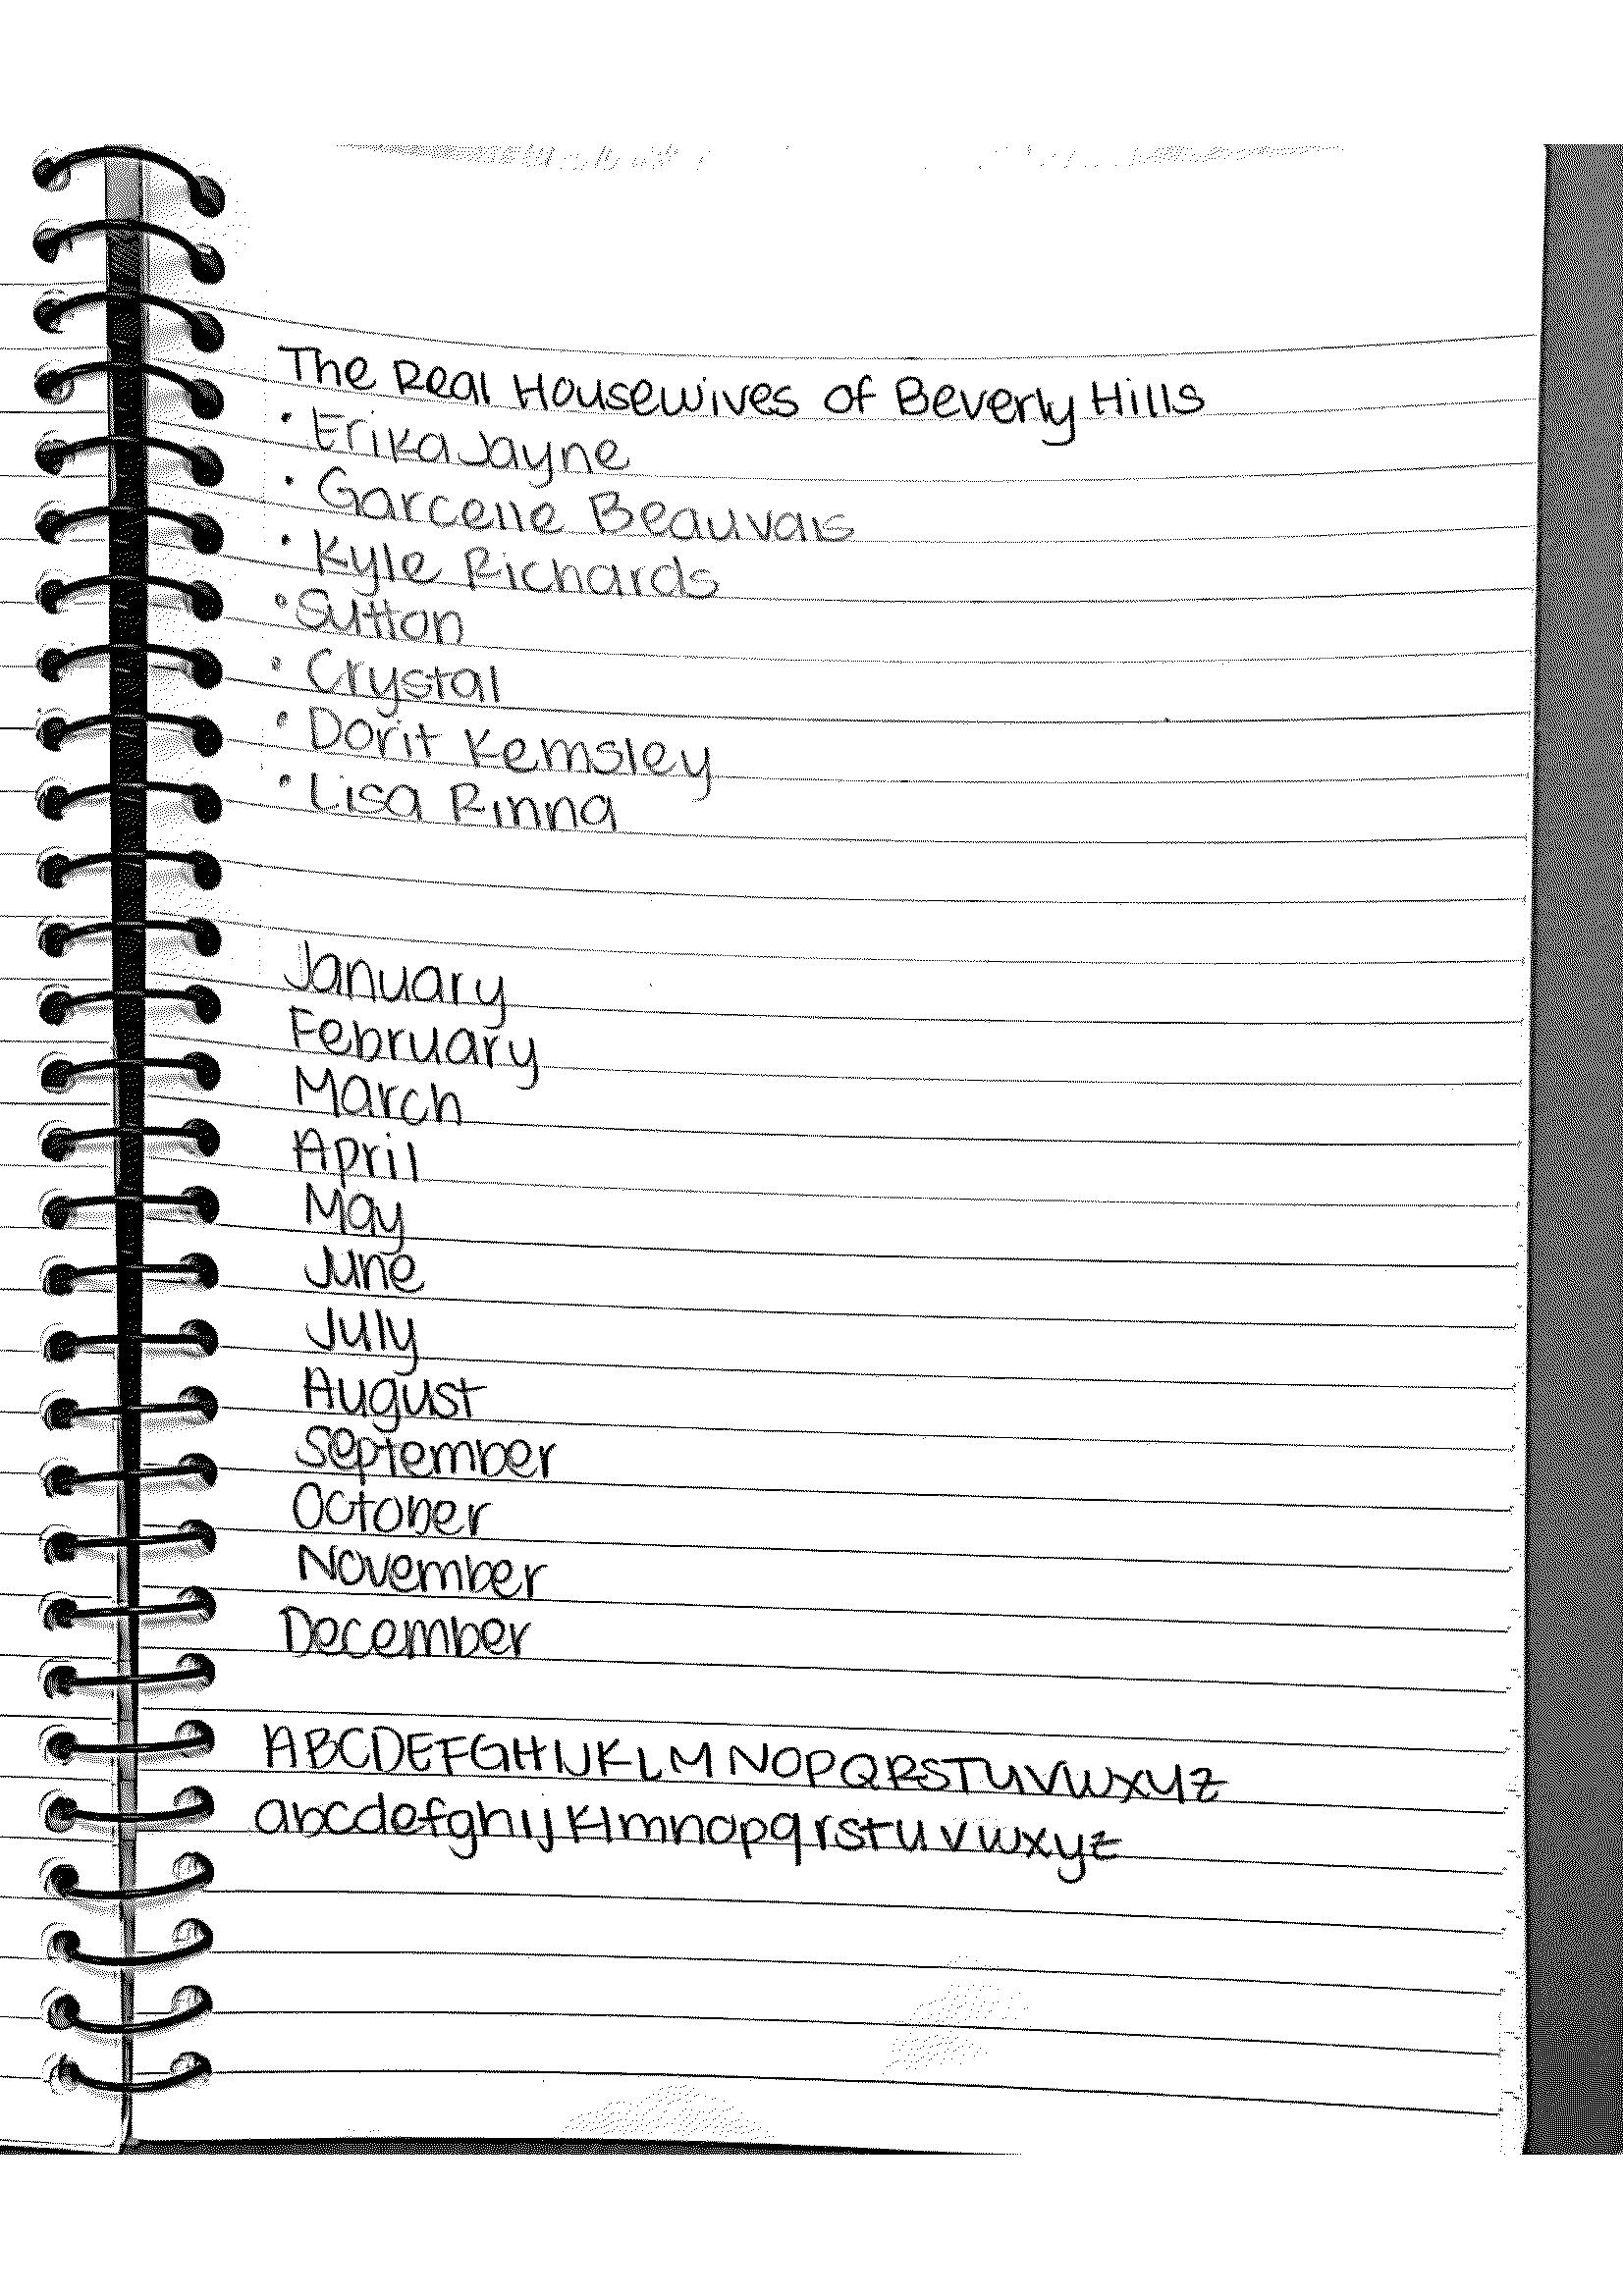 The Real Housewives of Beverly Hills
• Erika Jayne
• Garcelle Beauvais
• Kyle Richards
• Sutton
• Crystal
• Dorit Kemsley
• Lisa Rinna
January
February
March
April
May
June
July
August
September
October
November
December
ABCDEFGHIJKLMNOPQRSTUVWXYZ
abcdefghijklmnopqrstuvwxyz